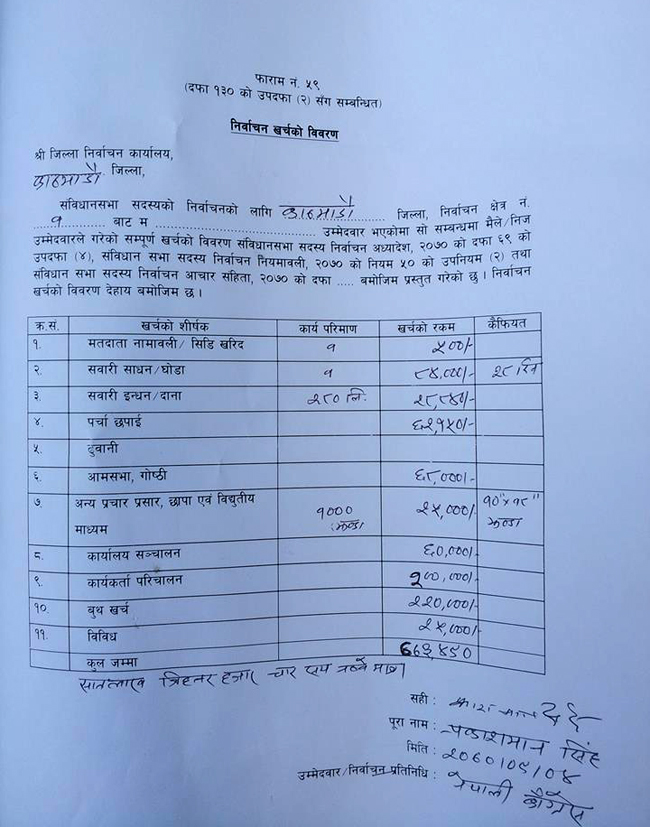 फाराम नं. ५९
(दफा १३० को उपदफा (२) सँग सम्बन्धित)
निर्वाचन खर्चको विवरण
श्री जिल्ला निर्वाचन कार्यालय,
काठमाडौं जिल्ला,
संविधानसभा सदस्यको निर्वाचनको लागि काठमाडौं जिल्ला, निर्वाचन क्षेत्र नं.
१ बाट म .......... उम्मेदवार भएकोमा सो सम्बन्धमा मैले/निज
उम्मेदवारले गरेको सम्पूर्ण खर्चको विवरण संविधानसभा सदस्य निर्वाचन अध्यादेश, २०७० को दफा ६९ को
उपदफा (४), संविधान सभा सदस्य निर्वाचन नियमावली, २०७० को नियम ५० को उपनियम (२) तथा
संविधान सभा सदस्य निर्वाचन आचार संहिता, २०७० को दफा ..... बमोजिम प्रस्तुत गरेको छु । निर्वाचन
खर्चको विवरण देहाय बमोजिम छ ।
क्र.सं. खर्चको शीर्षक कार्य परिमाण खर्चको रकम कैफियत
१. मतदाता नामावली/ सिडि खरिद १ ५००/-
२. सवारी साधन/घोडा १ ८४,०००/- २८ दिन
३. सवारी इन्धन/दाना २८० लि. २८,८४०/-
४. पर्चा छपाई ६२१५०/-
५. ढुवानी
६. आमसभा, गोष्ठी ६८,०००/-
७. अन्य प्रचार प्रसार, छापा एवं विद्युतीय १००० २५,०००/- १०"×१८"
माध्यम झण्डा झण्डा
८. कार्यालय सञ्चालन ६०,०००/-
९. कार्यकर्ता परिचालन
१०. बुथ खर्च २२०,०००/-
११. विविध २५,०००/-
कुल जम्मा
सातलाख त्रिहत्तर हजार चार सय नब्बे मात्र
सही :
पूरा नाम : प्रकाशमान सिंह
मिति : २०७०/०९/०४
उम्मेदवार/निर्वाचन प्रतिनिधि : नेपाली काँग्रेस